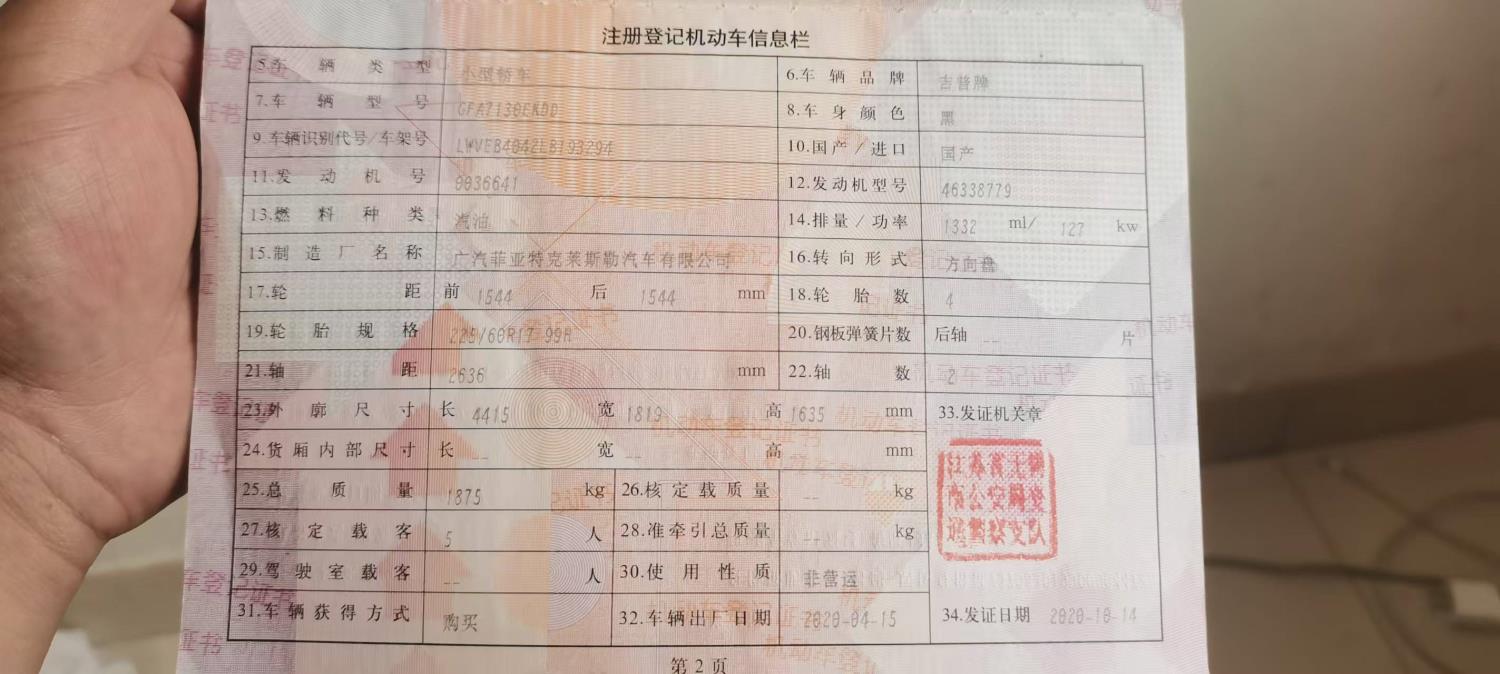 注册登记机动车信息栏
5.车辆类型 小型轿车 6.车辆品牌 吉普牌
7.车辆型号 GFA7130EKDD 8.车身颜色 黑
9.车辆识别代号/车架号 LWVEB4042LB193294 10.国产/进口 国产
11.发动机号 0036641 12.发动机型号 46338779
13.燃料种类 汽油 14.排量/功率 1332 ml/ 127 kw
15.制造厂名称 广汽菲亚特克莱斯勒汽车有限公司 16.转向形式 方向盘
17.轮距 前 1544 后 1544 mm 18.轮胎数 4
19.轮胎规格 225/60R17 99H 20.钢板弹簧片数 后轴 -- 片
21.轴距 2636 mm 22.轴数 2
23.外廓尺寸 长 4415 宽 1819 高 1635 mm 33.发证机关章
24.货厢内部尺寸 长 -- 宽 -- 高 -- mm
25.总质量 1875 kg 26.核定载质量 -- kg
27.核定载客 5 人 28.准牵引总质量 -- kg
29.驾驶室载客 -- 人 30.使用性质 非营运
31.车辆获得方式 购买 32.车辆出厂日期 2020-04-15 34.发证日期 2020-10-14
第2页